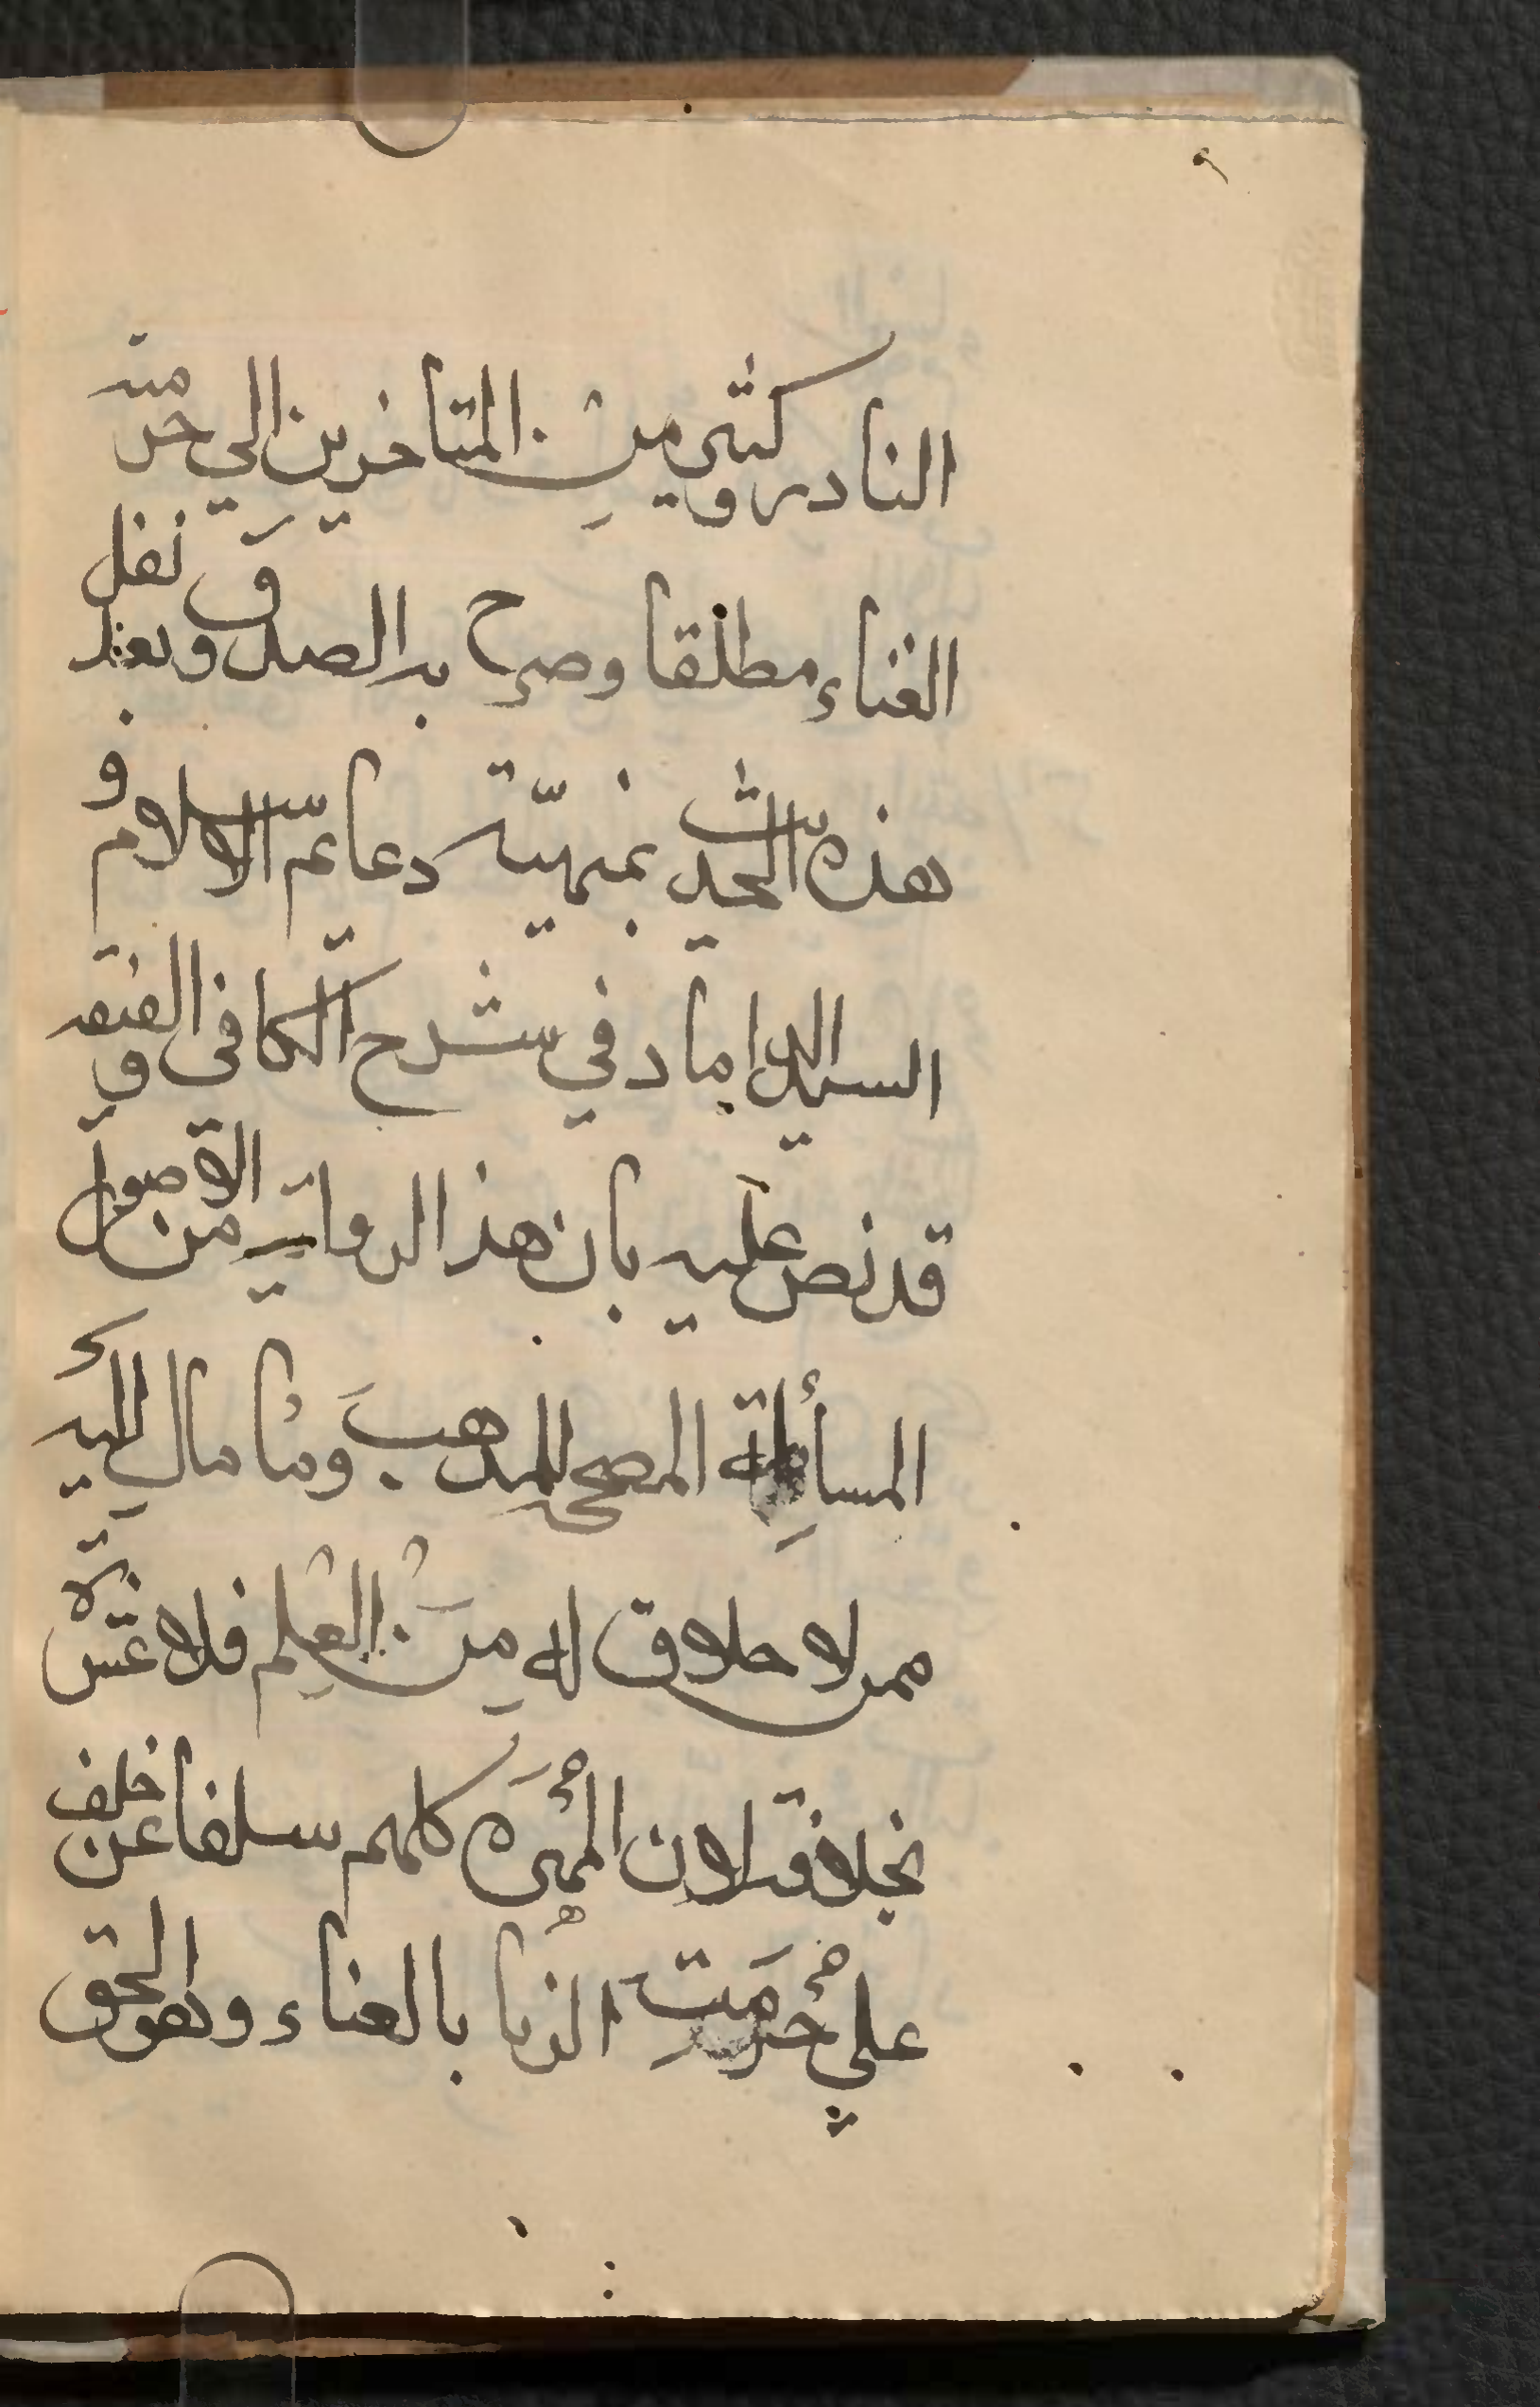 ٩
النادر وكثير من المتاخرين الي حرمته
الغناء مطلقا وصرح به الصدوق و بعد نقل
هذه الحديث بنمية دعائم الاسلام و
السيد الداماد في شرح الكافي الفقه و
قد نص عليه بان هذا الرواية من الاصول
المسألة المصححه للمذهب وما مال اليه
ممن لا خلاق له من العلم فلا عبرة
بخلافته لان الأئمة كلهم سلفا عن خلف
علي حرمت الزنا بالغناء وهو الحق